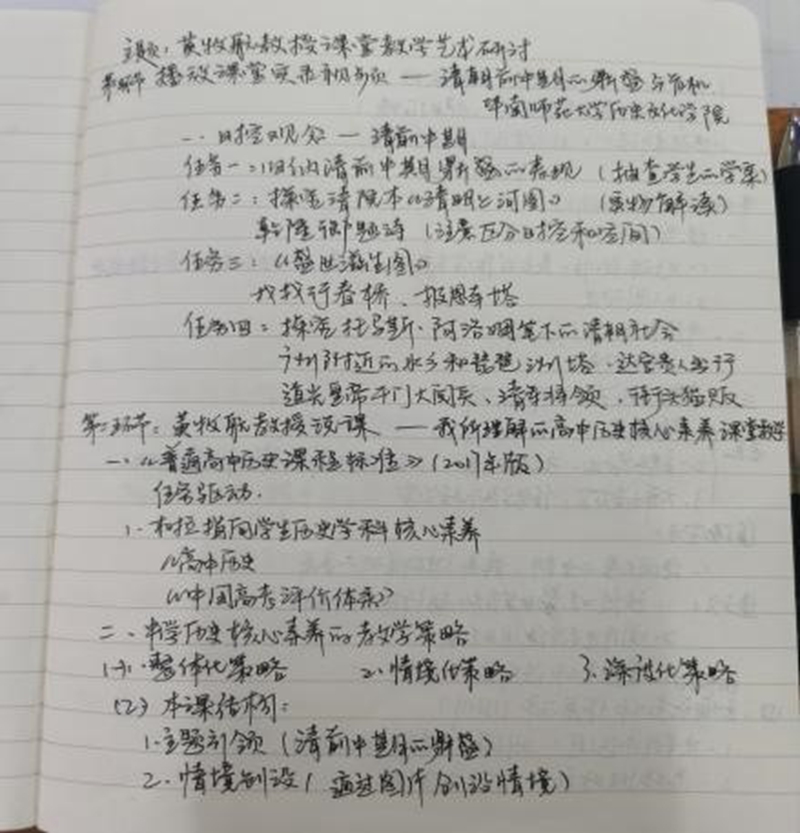 主题：黄牧航教授课堂教学艺术研讨
第一环节 播放课堂实录视频 —— 清朝前中期的鼎盛与危机
华南师范大学历史文化学院
一、时空观念 — 清前中期
任务一：归纳清前中期鼎盛的表现（抽查学生的学案）
任务二：探究清院本《清明上河图》（实物解读）
乾隆御题诗（注意区分时空和空间）
任务三：《盛世滋生图》
找找行春桥、报恩寺塔
任务四：探究托马斯·阿洛姆笔下的清朝社会
广州附近的水乡和琵琶洲塔、达官贵人出行
道光皇帝午门大阅兵、清军将领、街头猫贩
第二环节：黄牧航教授说课 —— 我所理解的高中历史核心素养课堂教学
一、《普通高中历史课程标准》（2017年版）
任务驱动.
1. 指向学生历史学科核心素养
《高中历史
《中国高考评价体系》
二、中学历史核心素养的教学策略
(1) 1.整体化策略 2.情境化策略 3.深度化策略
(2) 本课结构：
1.主题引领（清前中期的鼎盛）
2.情境创设（通过图片创设情境）